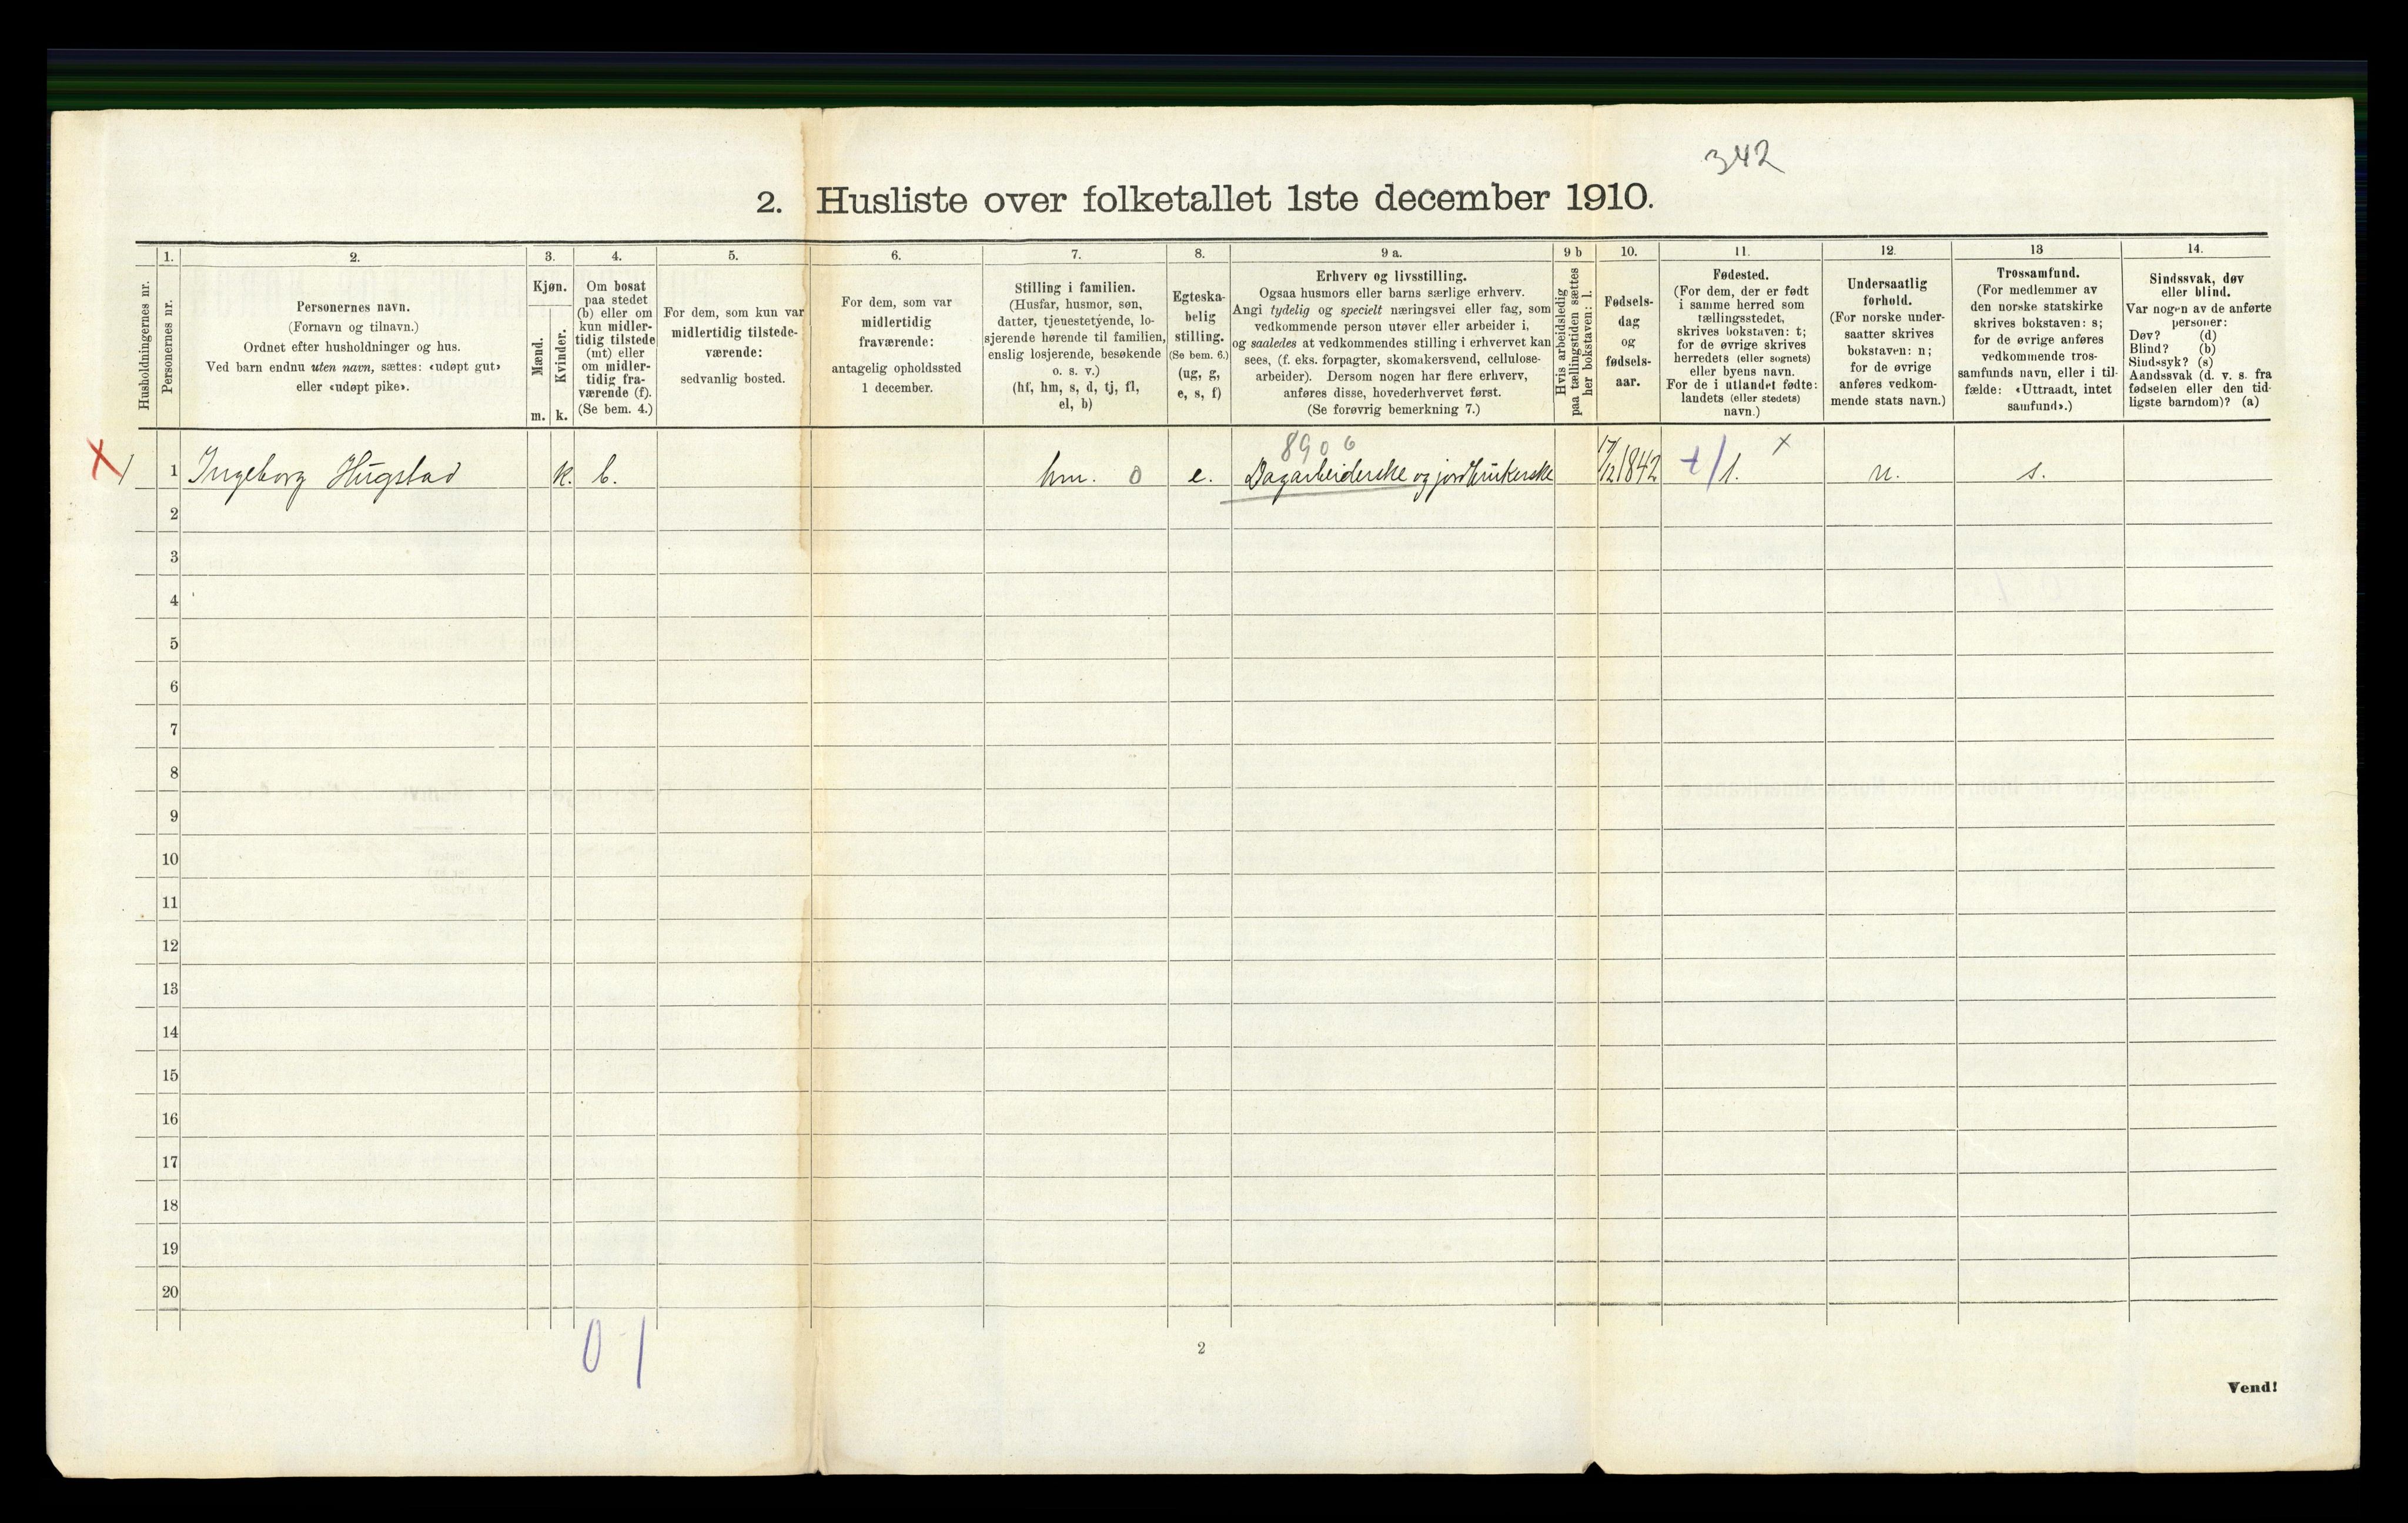 342
2. Husliste over folketallet 1ste december 1910.
Husholdningernes nr.
1.
Personernes nr.
2.
Personernes navn.
(Fornavn og tilnavn.)
Ordnet efter husholdninger og hus.
Ved barn endnu uten navn, sættes: «udøpt gut»
eller «udøpt pike».
3.
Kjøn.
Mænd.
m.
Kvinder.
k.
4.
Om bosat
paa stedet
(b) eller om
kun midler-
tidig tilstede
(mt) eller
om midler-
tidig fra-
værende (f).
(Se bem. 4.)
5.
For dem, som kun var
midlertidig tilstede-
værende:
sedvanlig bosted.
6.
For dem, som var
midlertidig
fraværende:
antagelig opholdssted
1 december.
7.
Stilling i familien.
(Husfar, husmor, søn,
datter, tjenestetyende, lo-
sjerende hørende til familien,
enslig losjerende, besøkende
o. s. v.)
(hf, hm, s, d, tj, fl,
el, b)
8.
Egteska-
belig
stilling.
(Se bem. 6.)
(ug, g,
e, s, f)
9 a.
Erhverv og livsstilling.
Ogsaa husmors eller barns særlige erhverv.
Angi tydelig og specielt næringsvei eller fag, som
vedkommende person utøver eller arbeider i,
og saaledes at vedkommendes stilling i erhvervet kan
sees, (f. eks. forpagter, skomakersvend, cellulose-
arbeider). Dersom nogen har flere erhverv,
anføres disse, hovederhvervet først.
(Se forøvrig bemerkning 7.)
9 b
Hvis arbeidsledig
paa tællingstiden sættes
her bokstaven: l.
10.
Fødsels-
dag
og
fødsels-
aar.
11.
Fødested.
(For dem, der er født
i samme herred som
tællingsstedet,
skrives bokstaven: t;
for de øvrige skrives
herredets (eller sognets)
eller byens navn.
For de i utlandet fødte:
landets (eller stedets)
navn.)
12.
Undersaatlig
forhold.
(For norske under-
saatter skrives
bokstaven: n;
for de øvrige
anføres vedkom-
mende stats navn.)
13
Trossamfund.
(For medlemmer av
den norske statskirke
skrives bokstaven: s;
for de øvrige anføres
vedkommende tros-
samfunds navn, eller i til-
fælde: «Uttraadt, intet
samfund».)
14.
Sindssvak, døv
eller blind.
Var nogen av de anførte
personer:
Døv? (d)
Blind? (b)
Sindssyk? (s)
Aandssvak (d. v. s. fra
fødselen eller den tid-
ligste barndom)? (a)
8906
X 1 1 Ingeborg Hugstad k. b. hm. 0 e. Dagarbeiderske og jordbrukerske 17/12 1842 t/ 1. x n. s.
2
3
4
5
6
7
8
9
10
11
12
13
14
15
16
17
18
19
20
0 1
2
Vend!